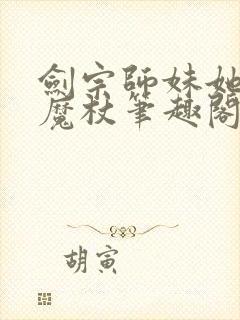 劍宗師妹她
魔杖筆趣閣
胡寅